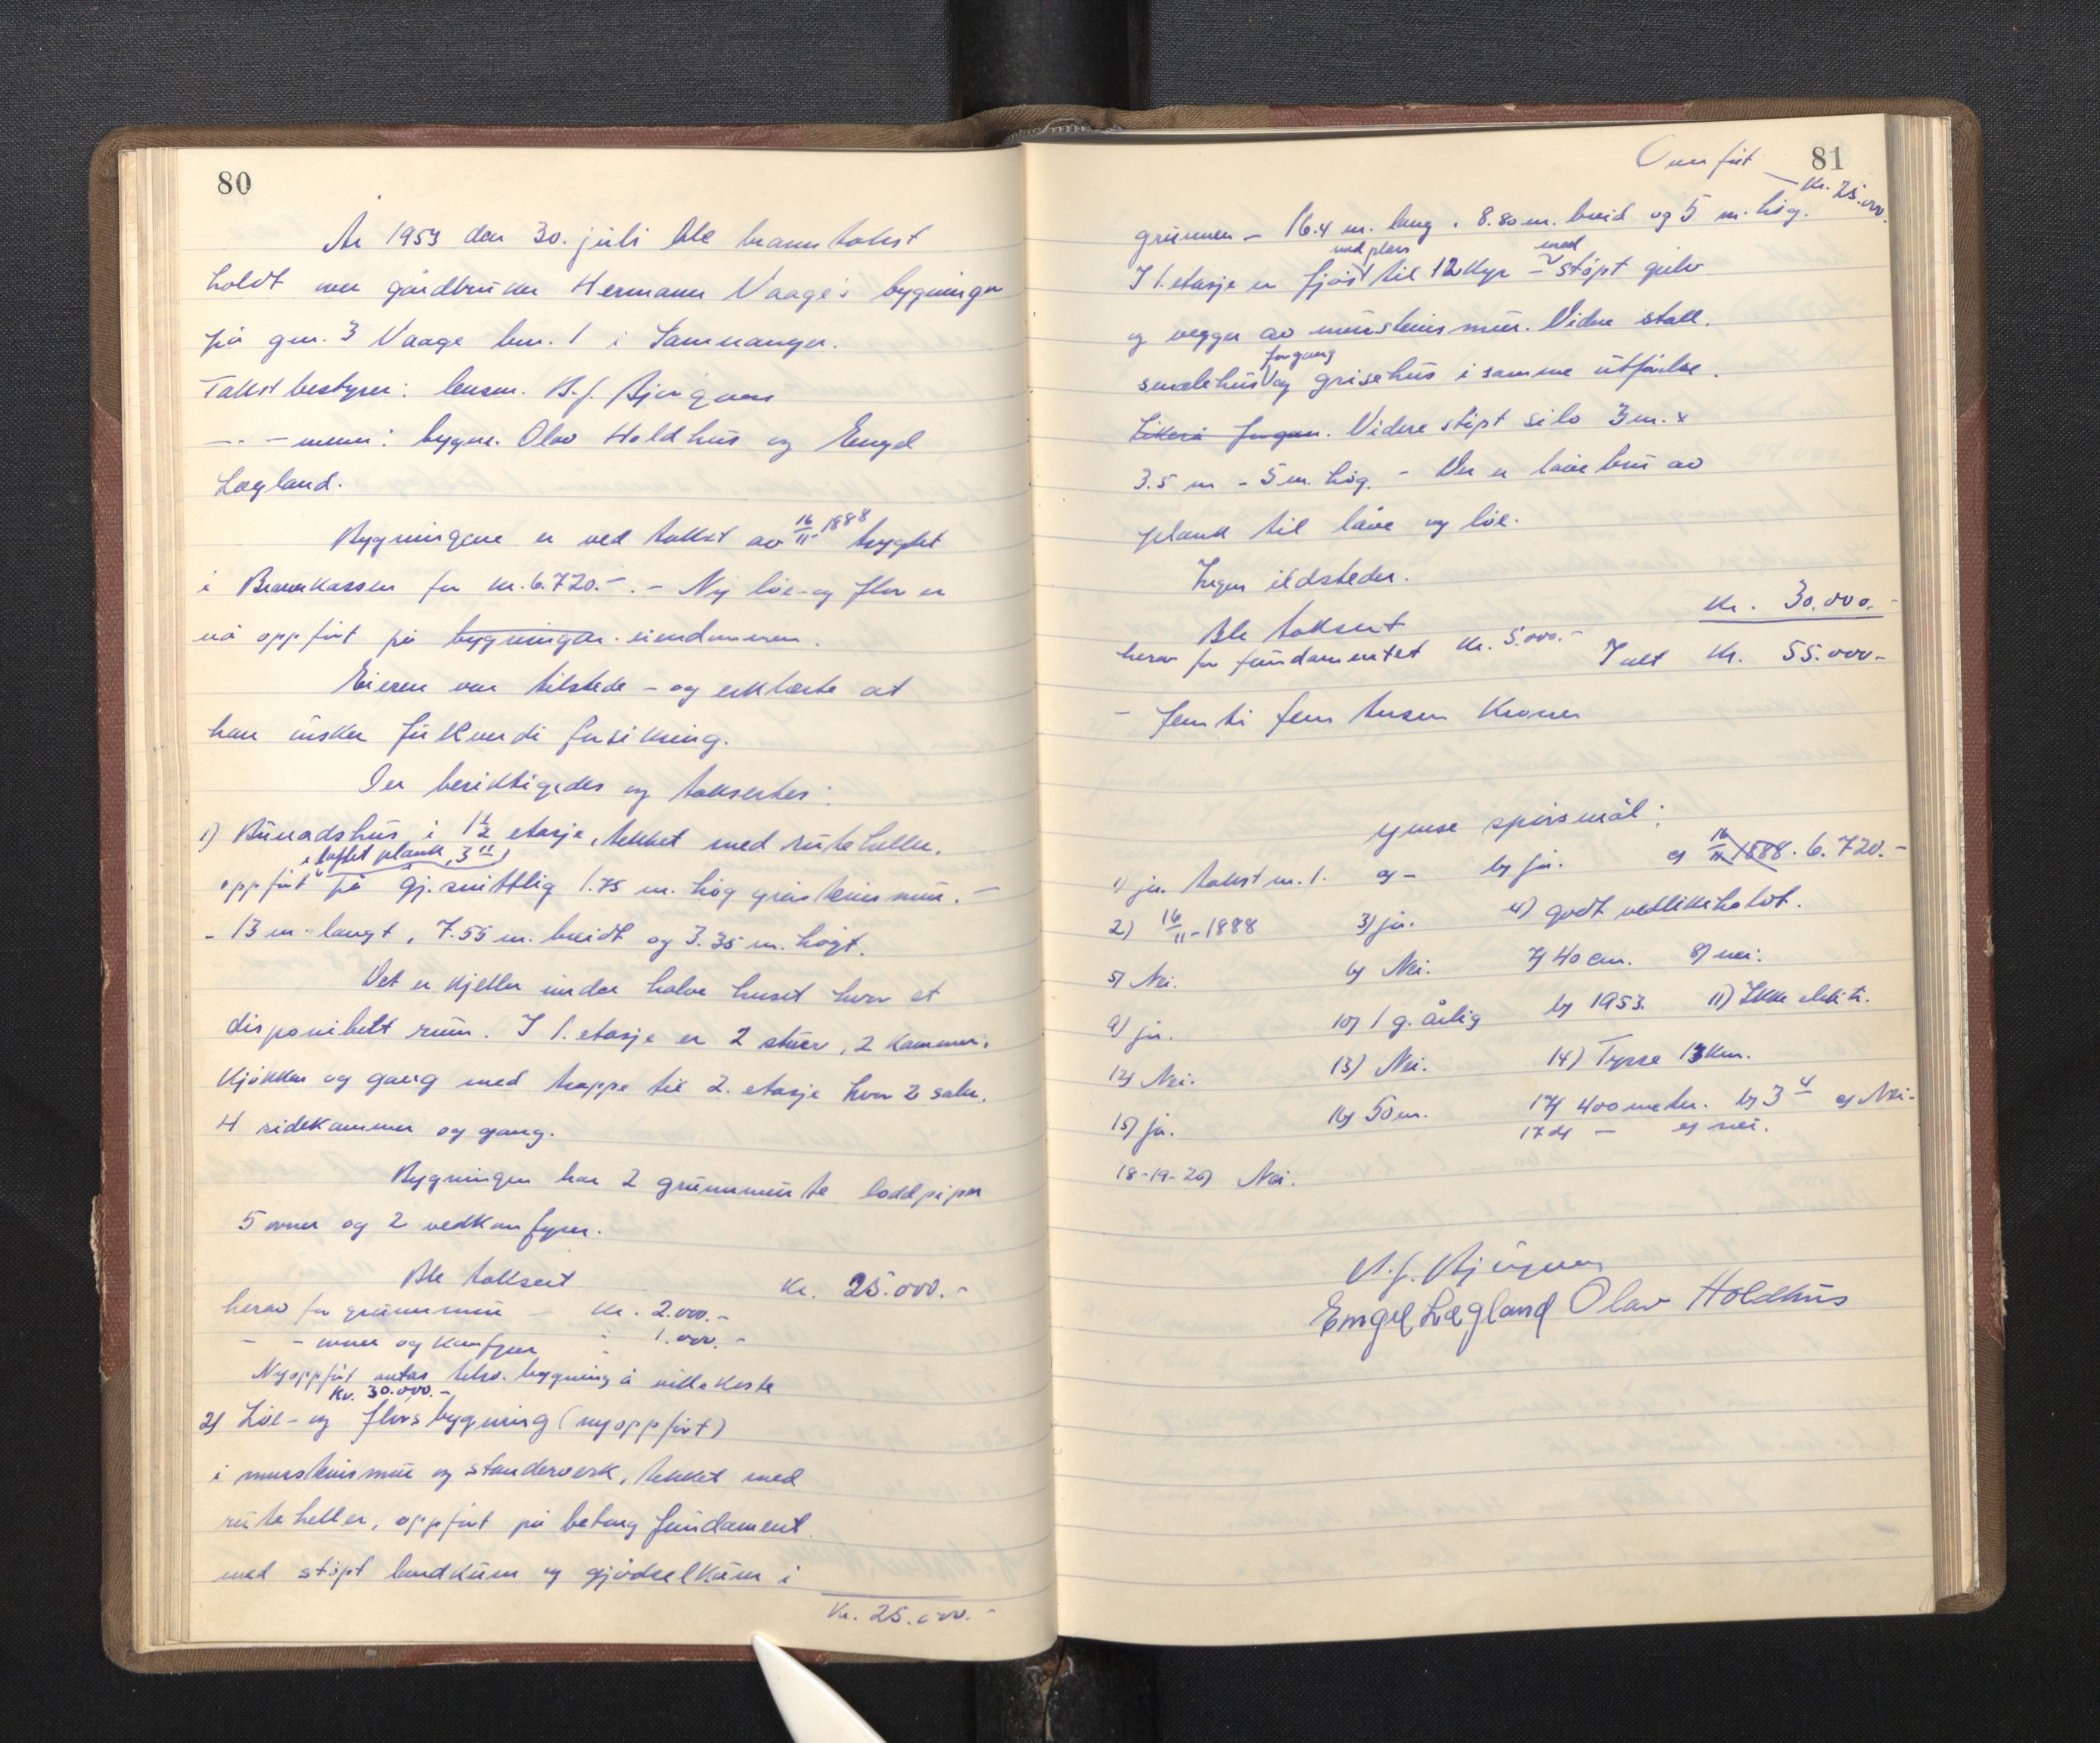 80
År 1953 den 30. juli ble branntakst
holdt over gårdbruker Hermann Vaage's bygninger
på gnr. 3 Vaage bnr. 1 i Samnanger.
Takstbestyrer: lensm. B. J. Bjørgven
— " — menn: bygnm. Olav Holdhus og Engel
Lægland.
Bygningene er ved takst av 16/11-1888 trygdet
i Brannkassen for kr. 6.720.-. - Ny löe- og flor er
nå oppfört på bygningen. eiendommen.
Eieren var tilstede - og erklærte at
han önsker fullverdi forsikring.
Der besiktigedes og taksertes:
1) Bunadshus i 1½ etasje, tekket med rutehelle.
i laftet plank, 3"
oppfört på gj.snittlig 1.75 m. hög gråsteinsmur. -
- 13 m langt, 7.55 m. breidt og 3.35 m. högt.
Det er kjeller under halve huset hvor et
disponibelt rum. I 1. etasje er 2 stuer, 2 kammer,
kjökken og gang med trappe til 2. etasje hvor 2 saler,
4 sidekammer og gang.
Bygningen har 2 grunnmurte loddpiper
5 ovner og 2 vedkomfyrer.
Ble taksert kr. 25.000.-
herav for grunnmur — kr. 2.000.-
- - ovner og komfyrer " 1.000.-
Nyoppfört antas tilsv. bygning å ville koste
kr. 30.000.-
2) Löe- og florsbygning (nyoppfört)
i mursteinsmur og standerverk, tekket med
ruteheller, oppfört på betong fundament
med stöpt landkum og gjödselkum i
Kr. 25.000.-
81
Overfört — kr. 25.000.
grunnen - 16.4 m. lang, 8.80 m. breid og 5 m. hög.
med plass med
I 1. etasje er fjös til 12 kyr - stöpt gulv
og vegger av mursteinsmur. Videre stall.
forgang
smalehus og grisehus i samme utförelse.
Likeså forgan. Videre stöpt silo 3 m. x
3.5 m - 5 m. hög. - Der er låvebru av
plank til låve og löe.
Ingen ildsteder.
Ble taksert kr. 30.000.-
herav for fundamentet kr. 5.000.- I alt kr. 55.000-
- femti fem tusen kroner
Ymse spörsmål:
1) ja. takst nr. 1. a) - b) ja. c) 16/11 1888. 6.720.-
2) 16/11-1888 3) ja. 4) godt vedlikeholdt.
5) Nei. 6) Nei. 7) 40 cm. 8) nei.
9) ja. 10) 1 g. årlig b) 1953. 11) Ikke elektr.
12) Nei. 13) Nei. 14) Tysse 13 km.
15) ja. 16) 50 m. 17) 400 meter. b) 3" c) Nei.
17 d) - e) nei.
18-19-20) Nei.
B. J. Bjørgven
Engel Lægland Olav Holdhus